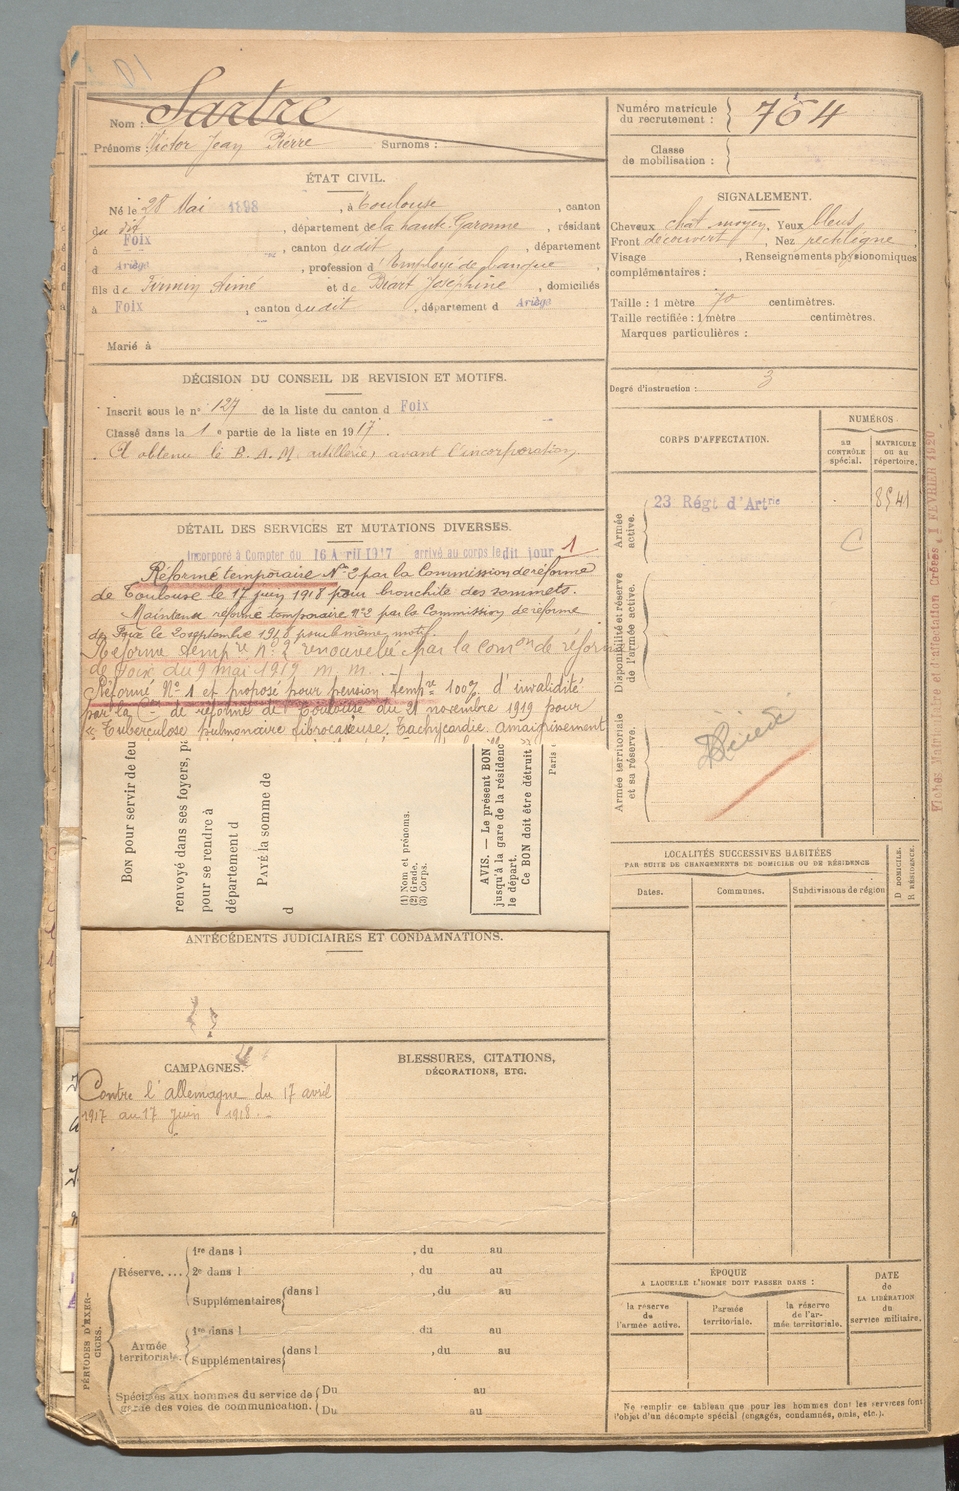 Nom : Sartre
Prénoms : Victor Jean Pierre Surnoms :
Numéro matricule du recrutement : 764
Classe de mobilisation :
ÉTAT CIVIL.
Né le 28 Mai 1898, à Toulouse, canton
du dit, département de la haute-Garonne, résidant
à Foix, canton du dit, département
d Ariège, profession d'Employé de banque,
fils de Firmin Aimé et de Biart Joséphine, domiciliés
à Foix, canton du dit, département d Ariège
Marié à
SIGNALEMENT.
Cheveux chat. moyen, Yeux bleus,
Front découvert, Nez rectiligne,
Visage , Renseignements physionomiques
complémentaires :
Taille : 1 mètre 70 centimètres.
Taille rectifiée : 1 mètre centimètres.
Marques particulières :
Degré d'instruction : 3
DÉCISION DU CONSEIL DE REVISION ET MOTIFS.
Inscrit sous le n° 127 de la liste du canton d Foix
Classé dans la 1e partie de la liste en 1917.
A obtenu le B. A. M. artillerie, avant l'incorporation
CORPS D'AFFECTATION.
NUMÉROS
au CONTRÔLE spécial.
MATRICULE ou au répertoire.
Armée active.
23 Régt d'Artrie 8541
C
Disponibilité et réserve de l'armée active.
Armée territoriale et sa réserve.
DÉTAIL DES SERVICES ET MUTATIONS DIVERSES.
Incorporé à Compter du 16 Avril 1917 arrivé au corps le dit jour 1
Réformé temporaire N° 2 par la Commission de réforme
de Toulouse le 17 juin 1918 pour bronchite des sommets.
Maintenu réformé temporaire n°2 par la Commission de réforme
de Foix le 20 septembre 1918 pour le même motif.
Réformé tempre n° 2 renouvelé par la Comon de réforme
de Foix du 9 mai 1919 m. m.
Réformé N° 1 et proposé pour pension tempre 100% d'invalidité
par la Con de réforme de Toulouse du 21 novembre 1919 pour
"Tuberculose pulmonaire fibrocaséeuse. Tachycardie. amaigrissement
BON pour servir de feu
renvoyé dans ses foyers, p
pour se rendre à
département d
PAYÉ la somme de
d
(1) Nom et prénoms.
(2) Grade.
(3) Corps.
AVIS. — Le présent BON
jusqu'à la gare de la résidenc
le départ.
Ce BON doit être détruit
Paris
LOCALITÉS SUCCESSIVES HABITÉES
PAR SUITE DE CHANGEMENTS DE DOMICILE OU DE RÉSIDENCE
Dates. Communes. Subdivisions de région
D DOMICILE.
R RÉSIDENCE.
ANTÉCÉDENTS JUDICIAIRES ET CONDAMNATIONS.
CAMPAGNES.
Contre l'allemagne du 17 avril
1917 au 17 Juin 1918
BLESSURES, CITATIONS,
DÉCORATIONS, ETC.
PÉRIODES D'EXERCICES.
Réserve....
1re dans l , du au
2e dans l , du au
Supplémentaires (dans l , du au
(du au
Armée territoriale.
1re dans l du au
Supplémentaires (dans l , du au
(du au
Spéciales aux hommes du service de garde des voies de communication.
(Du au
(Du au
ÉPOQUE
A LAQUELLE L'HOMME DOIT PASSER DANS :
la réserve de l'armée active.
l'armée territoriale.
la réserve de l'armée territoriale.
DATE
de
LA LIBÉRATION
du
service militaire.
Ne remplir ce tableau que pour les hommes dont les services font
l'objet d'un décompte spécial (engagés, condamnés, omis, etc.).
Fiches Matricule et d'affectation Créées, 1 FÉVRIER 1920